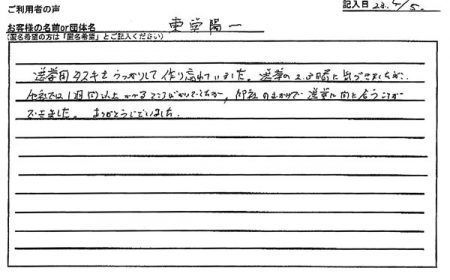 ご利用者の声
記入日 23.4/5.
お客様の名前or団体名
(匿名希望の方は「匿名希望」とご記入ください)
選挙用タスキをうっかりして作り忘れていました。選挙の2日前に気づきましたが、
他社では1週間以上かかるところばかりでしたが、御社のおかげで選挙に間に合うことが
できました。ありがとうございました。